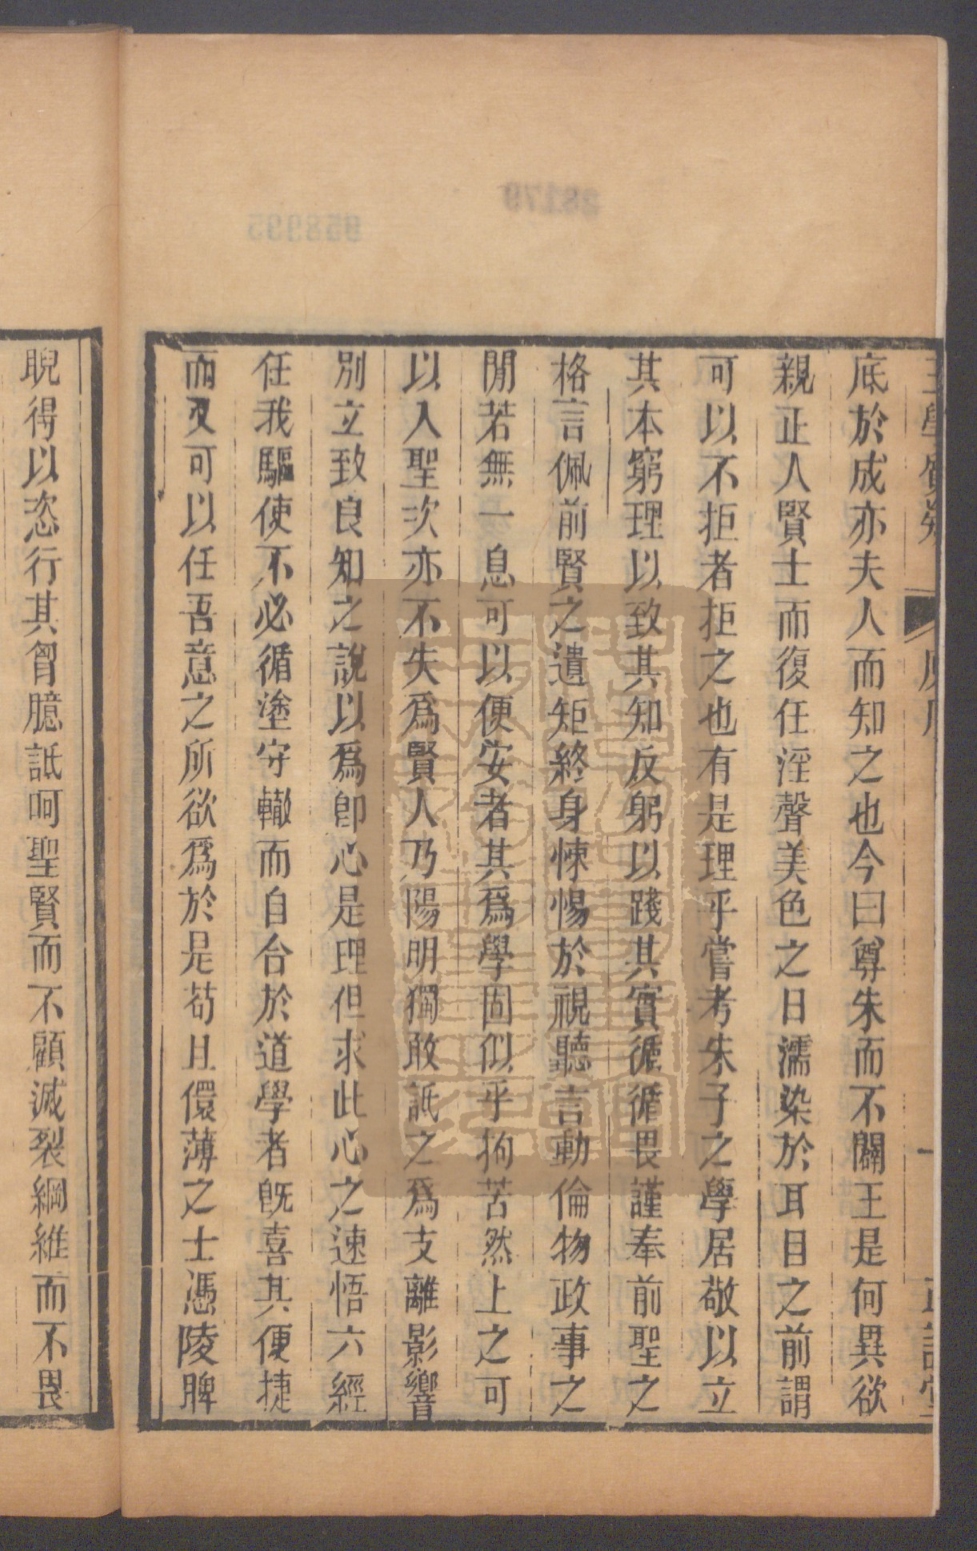 王學質疑 原序 一 正誼堂
底於成亦夫人而知之也今曰尊朱而不闢王是何異欲
親正人賢士而復任淫聲美色之日濡染於耳目之前謂
可以不拒者拒之也有是理乎嘗考朱子之學居敬以立
其本窮理以致其知反躬以踐其實循循畏謹奉前聖之
格言佩前賢之遺矩終身悚惕於視聽言動倫物政事之
閒若無一息可以便安者其爲學固似乎拘苦然上之可
以入聖次亦不失爲賢人乃陽明獨敢詆之爲支離影響
別立致良知之說以爲卽心是理但求此心之速悟六經
任我驅使不必循塗守轍而自合於道學者旣喜其便捷
而又可以任吾意之所欲爲於是苟且儇薄之士憑陵脾
睨得以恣行其胷臆詆呵聖賢而不顧滅裂綱維而不畏
958995
38179